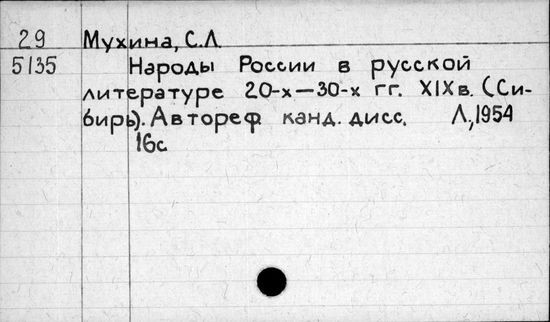 29 Мухина, С.Л.
5135 Народы России в русской
литературе 20-х—30-х гг. XIXв. (Си-
бирь). Автореф канд. дисс. Л.,1954
16с